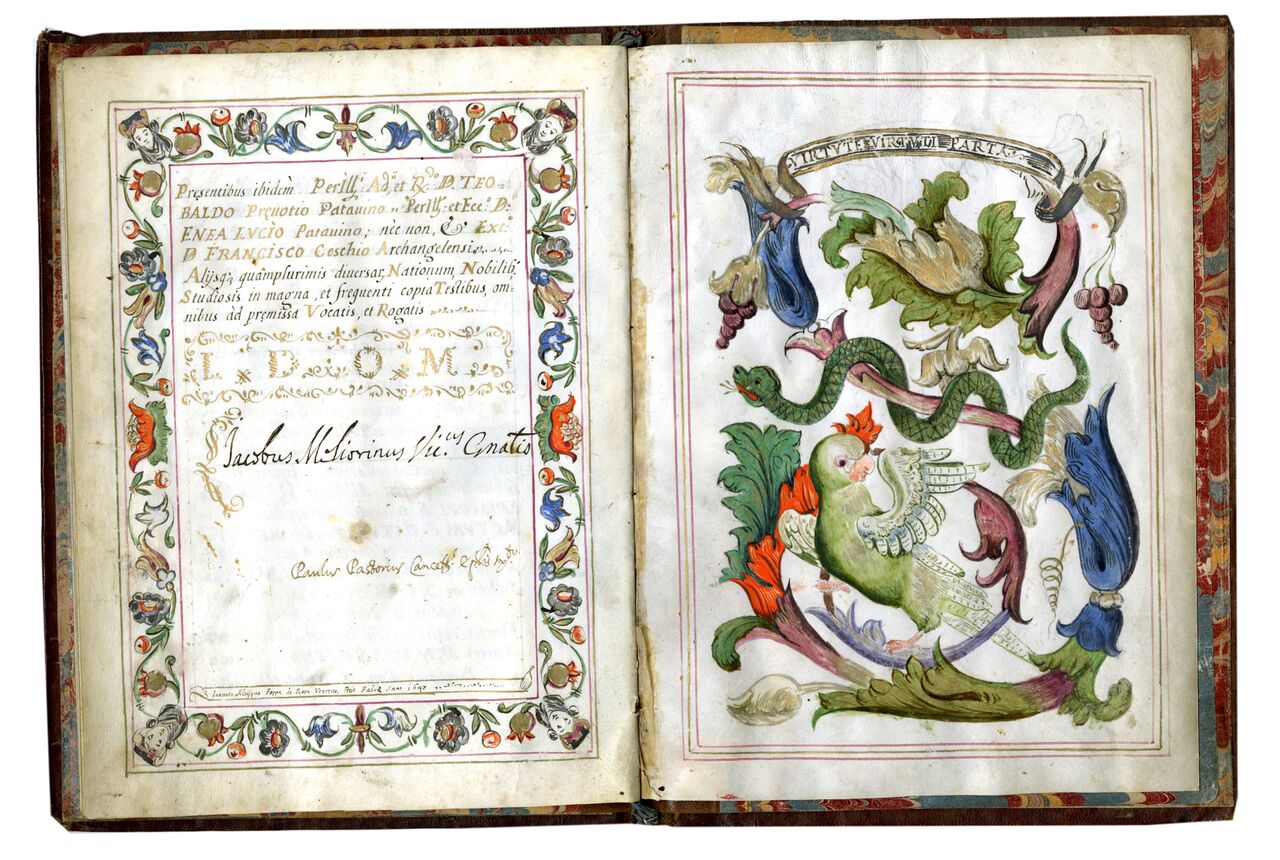 Pręsentibus ibidem̀ Perìll; Ad; et R.do D. TEO-
BALDO Pręuotio Patauino,, Perìll; et Ecc.o D:
ENEA LVCIO Patauino; nèc non, & Exc:
D FRANCISCO Ceschio Archangelensi
Alijsq; quàmplurimis diuersar, Nationum, Nobilib;
Studiosis in magna, et frequenti copia Testibus, om-
nibus ad pręmissa Vocatis, et Rogatis
L. D. O. M.
Iacobus Meliorinus Vic.cus Gnalis
Paulus Pastorius Cancell.
Ioannes Fecit Paduę Anno
VIRTVTE VIRTVDI PARTA